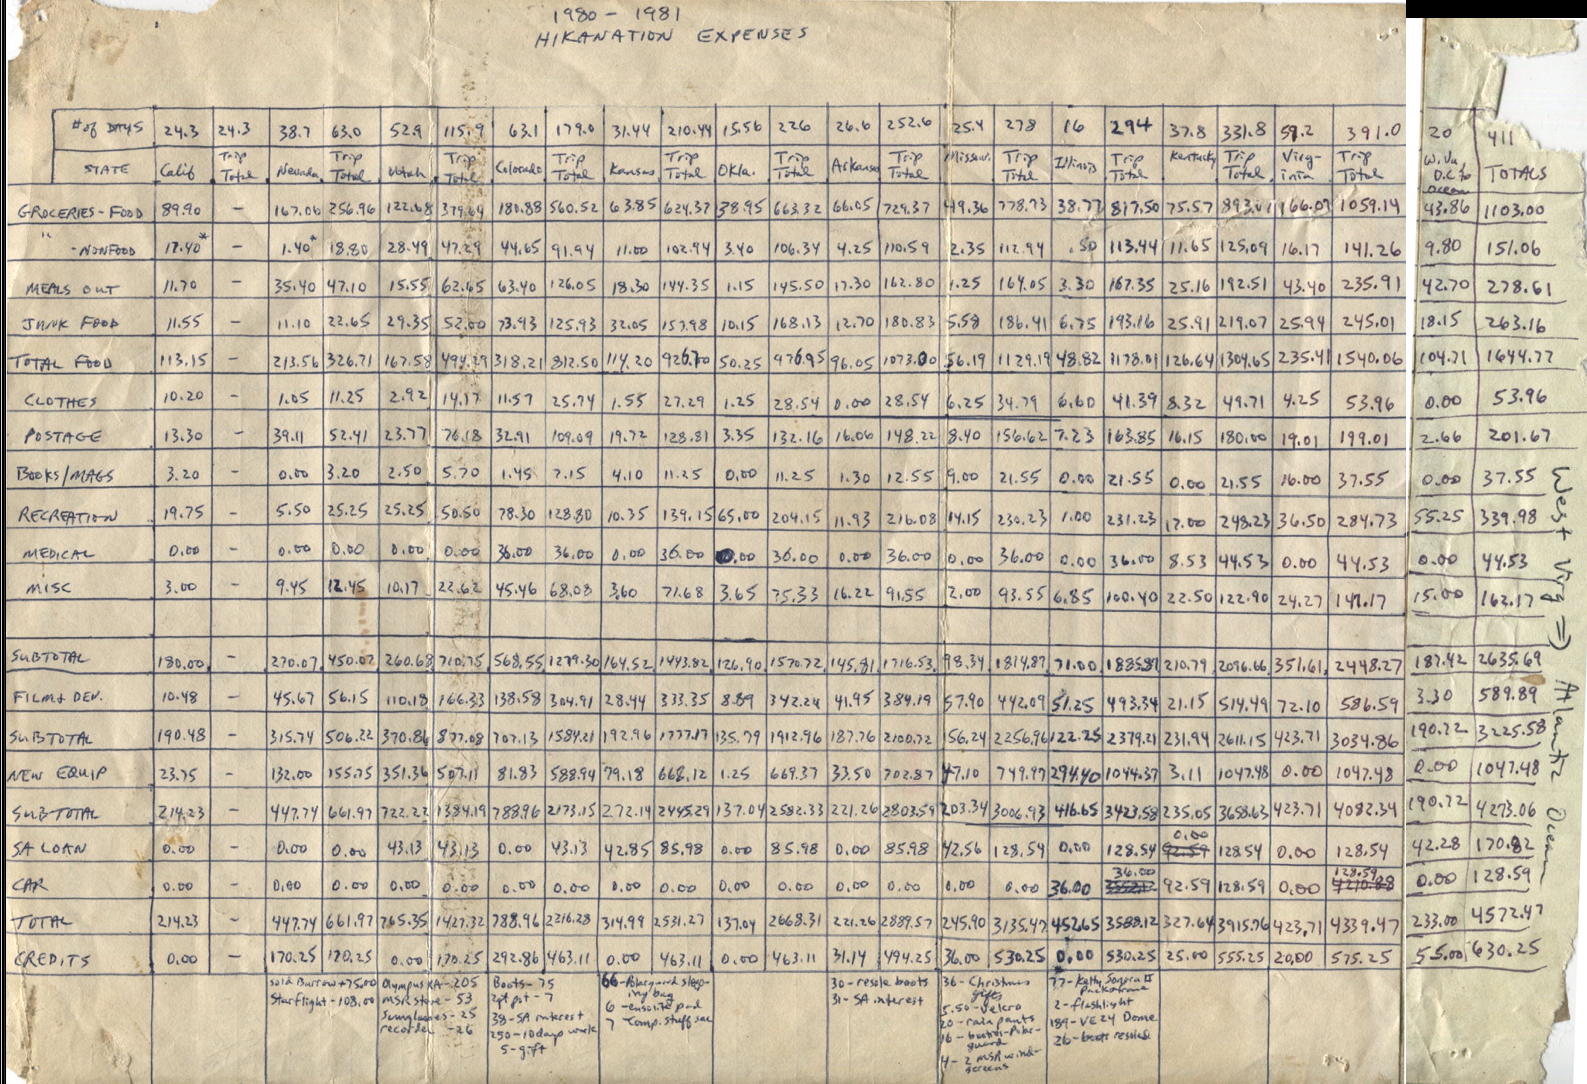 1980 - 1981
HIKANATION EXPENSES
# of DAYS 24.3 24.3 38.7 63.0 52.9 115.9 63.1 179.0 31.44 210.44 15.56 226 26.6 252.6 25.4 278 16 294 37.8 331.8 59.2 391.0 20 411
STATE Calif Trip Total Nevada Trip Total Utah Trip Total Colorado Trip Total Kansas Trip Total Okla. Trip Total Arkansas Trip Total Missou. Trip Total Illinois Trip Total Kentucky Trip Total Virg-inia Trip Total W. Va D.C to Ocean TOTALS
GROCERIES - FOOD 89.90 - 167.06 256.96 122.68 379.64 180.88 560.52 63.85 624.37 38.95 663.32 66.05 729.37 49.36 778.73 38.77 817.50 75.57 893.07 166.07 1059.14 43.86 1103.00
" - NONFOOD 17.40* - 1.40* 18.80 28.49 47.29 44.65 91.94 11.00 102.94 3.40 106.34 4.25 110.59 2.35 112.94 .50 113.44 11.65 125.09 16.17 141.26 9.80 151.06
MEALS OUT 11.70 - 35.40 47.10 15.55 62.65 63.40 126.05 18.30 144.35 1.15 145.50 17.30 162.80 1.25 164.05 3.30 167.35 25.16 192.51 43.40 235.91 42.70 278.61
JUNK FOOD 11.55 - 11.10 22.65 29.35 52.00 73.93 125.93 32.05 157.98 10.15 168.13 12.70 180.83 5.58 186.41 6.75 193.16 25.91 219.07 25.94 245.01 18.15 263.16
TOTAL FOOD 113.15 - 213.56 326.71 167.58 494.29 318.21 812.50 114.20 926.70 50.25 976.95 96.05 1073.00 56.19 1129.19 48.82 1178.01 126.64 1304.65 235.41 1540.06 104.71 1644.77
CLOTHES 10.20 - 1.05 11.25 2.92 14.17 11.57 25.74 1.55 27.29 1.25 28.54 0.00 28.54 6.25 34.79 6.60 41.39 8.32 49.71 4.25 53.96 0.00 53.96
POSTAGE 13.30 - 39.11 52.41 23.77 76.18 32.91 109.09 19.72 128.81 3.35 132.16 16.06 148.22 8.40 156.62 7.23 163.85 16.15 180.00 19.01 199.01 2.66 201.67
BOOKS/MAGS 3.20 - 0.00 3.20 2.50 5.70 1.45 7.15 4.10 11.25 0.00 11.25 1.30 12.55 9.00 21.55 0.00 21.55 0.00 21.55 16.00 37.55 0.00 37.55
RECREATION 19.75 - 5.50 25.25 25.25 50.50 78.30 128.80 10.35 139.15 65.00 204.15 11.93 216.08 14.15 230.23 1.00 231.23 17.00 248.23 36.50 284.73 55.25 339.98
MEDICAL 0.00 - 0.00 0.00 0.00 0.00 36.00 36.00 0.00 36.00 0.00 36.00 0.00 36.00 0.00 36.00 0.00 36.00 8.53 44.53 0.00 44.53 0.00 44.53
MISC 3.00 - 9.45 12.45 10.17 22.62 45.46 68.08 3.60 71.68 3.65 75.33 16.22 91.55 2.00 93.55 6.85 100.40 22.50 122.90 24.27 147.17 15.00 162.17
SUBTOTAL 180.00 - 270.07 450.07 260.68 710.75 568.55 1279.30 164.52 1443.82 126.90 1570.72 145.81 1716.53 98.34 1814.87 71.00 1885.87 210.79 2096.66 351.61 2448.27 187.42 2635.69
FILM & DEV. 10.48 - 45.67 56.15 110.18 166.33 138.58 304.91 28.44 333.35 8.89 342.24 41.95 384.19 57.90 442.09 51.25 493.34 21.15 514.49 72.10 586.59 3.30 589.89
SUBTOTAL 190.48 - 315.74 506.22 370.86 877.08 707.13 1584.21 192.96 1777.17 135.79 1912.96 187.76 2100.72 156.24 2256.96 122.25 2379.21 231.94 2611.15 423.71 3034.86 190.72 3225.58
NEW EQUIP 23.75 - 132.00 155.75 351.36 507.11 81.83 588.94 79.18 668.12 1.25 669.37 33.50 702.87 47.10 749.97 294.40 1044.37 3.11 1047.48 0.00 1047.48 0.00 1047.48
SUBTOTAL 214.23 447.74 661.97 722.22 1384.19 788.96 2173.15 272.14 2445.29 137.04 2582.33 221.26 2803.59 203.34 3006.93 416.65 3423.58 235.05 3658.63 423.71 4082.34 190.72 4273.06
SA LOAN 0.00 - 0.00 0.00 43.13 43.13 0.00 43.13 42.85 85.98 0.00 85.98 0.00 85.98 42.56 128.54 0.00 128.54 0.00 92.59 128.54 0.00 128.54 42.28 170.82
CAR 0.00 - 0.00 0.00 0.00 0.00 0.00 0.00 0.00 0.00 0.00 0.00 0.00 0.00 0.00 0.00 36.00 36.00 92.59 128.59 0.00 128.59 0.00 128.59
TOTAL 214.23 - 447.74 661.97 765.35 1427.32 788.96 2216.28 314.99 2531.27 137.04 2668.31 221.26 2889.57 245.90 3135.47 452.65 3588.12 327.64 3915.76 423.71 4339.47 233.00 4572.47
CREDITS 0.00 - 170.25 170.25 0.00 170.25 292.86 463.11 0.00 463.11 0.00 463.11 31.14 494.25 36.00 530.25 0.00 530.25 25.00 555.25 20.00 575.25 55.00 630.25
sold Burrow + 75.00
Starflight - 108.00
Olympus XA - 205
MSR stove - 53
Sunglasses - 25
recorder - 26
Boots - 75
2pt pot - 7
38 - SA interest
250 - 10 days work
5 - gift
66 - Polarguard sleep-
ing bag
6 - ensolite pad
7 Comp. stuff sac
30 - resole boots
31 - SA interest
36 - Christmas
gifts
5.50 - Velcro
20 - rain pants
16 - booties - Polar-
guard
4 - 2 MSR wind-
screens
77 - Kelty Sonora II
Packframe
2 - flashlight
189 - VE24 Dome
26 - boots resoled
West Virg => Atlantic Ocean